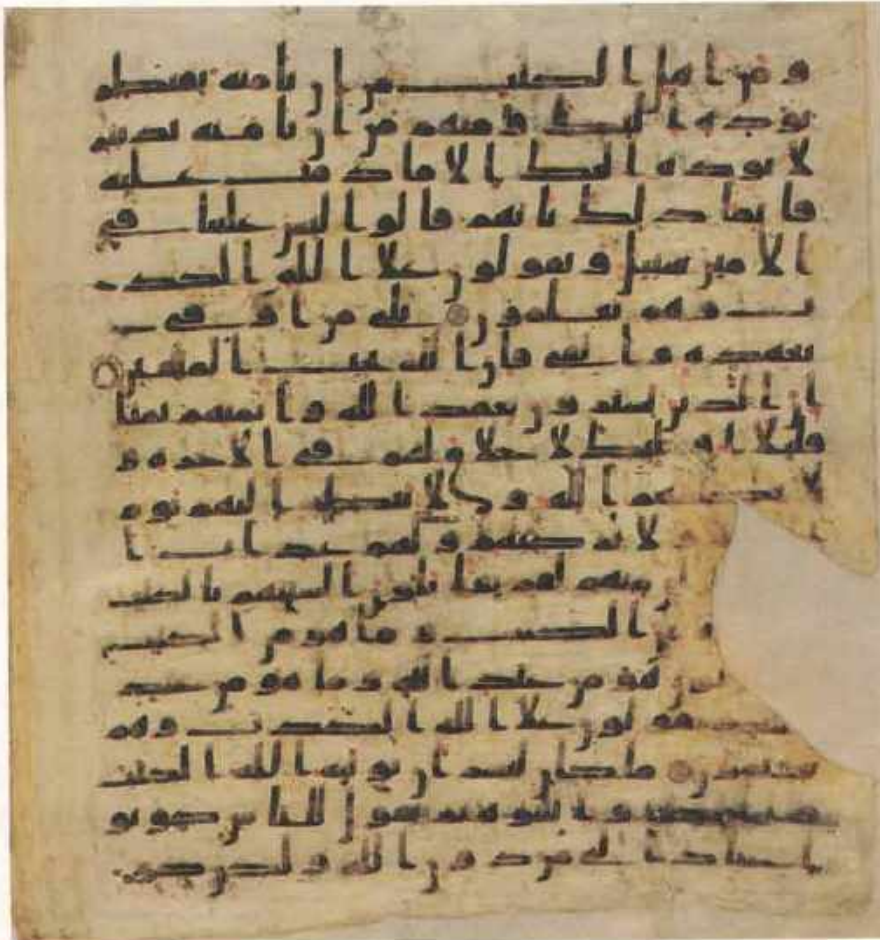 و من اهل الكتب من ان تامنه بقنطر
يوده اليك و منهم من ان تامنه بدينر
لا يوده اليك الا ما دمت عليه
قايما ذلك بانهم قالوا ليس علينا في
الامين سبيل و يقولون علا الله الكذ
ب وهم يعلمون بلى من اوفى
بعهده و اتقى فان الله يحب المتقين
ان الذين يشترون بعهد الله و ايمنهم ثمنا
قليلا اوليك لا خلاق لهم في الاخره و
لا يكلمهم الله و لا ينظر اليهم يوم
لا يزكيهم و لهم عذاب ا
ن منهم لفريقا يلون السنتهم بالكتب
من الكتب و ما هو من الكتب
لون هو من عند الله و ما هو من عند
يقولون علا الله الكذب و هم
يعلمون ما كان لبشر ان يوتيه الله الكتب
والحكم و النبوه ثم يقول للناس كونو
ا عبادا لي من دون الله و لكن كونو